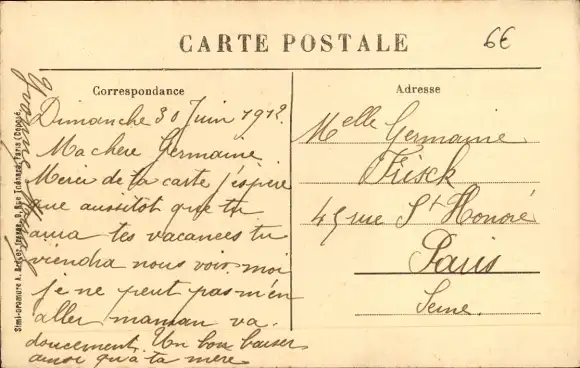 CARTE POSTALE
6€
Correspondance
Adresse
Dimanche 30 Juin 1912.
Ma chère Germaine.
Merci de ta carte j'espère
que aussitot que tu
aura tes vacances tu
viendra nous voir. moi
je ne peut pas m'en
aller maman va.
doucement. Un bon baiser
ainsi qu'à ta mère
Melle Germaine
45 rue St Honoré
Paris
Seine.